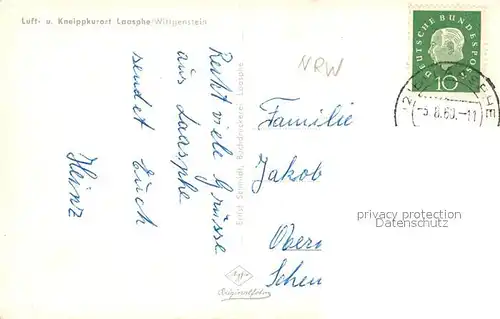 Luft- u. Kneippkurort Laasphe-Wittgenstein
Recht viele Grüsse
aus Laasphe
sendet Euch
Heinz
Ernst Schmidt, Buchdruckerei, Laasphe
NRW
DEUTSCHE BUNDESPOST
10
-5.8.60.-11
Familie
Jakob
Obern
Schen
privacy protection
Datenschutz
Agfa
Originalfoto